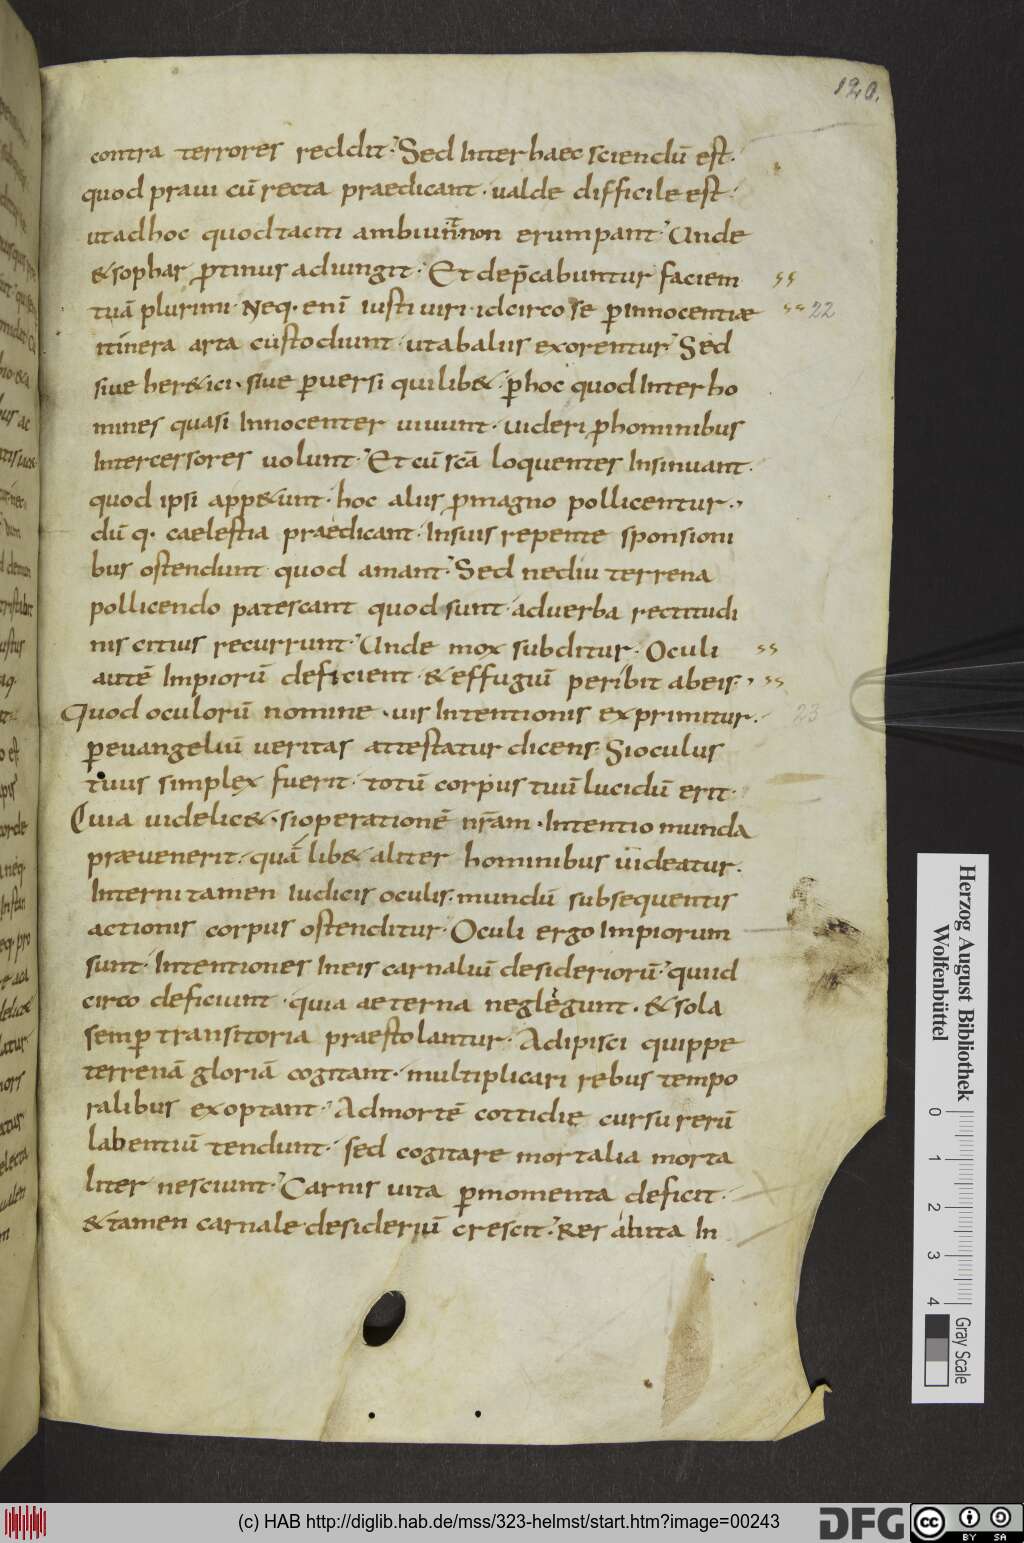 120.
contra terrores reddit. Sed Inter haec sciendū est.
quod praui cū recta praedicant. ualde difficile est.
ut ad hoc quod taciti ambiunt non erumpant. Unde
& sophar ꝓtinus adiungit. Et dep̄cabuntur faciem
tuā plurimi. Neq. enī iusti uiri. idcirco se ꝑ Innocentiæ
itinera arta custodiunt. ut ab aliis exorentur. Sed
siue her&ici. siue ꝑuersi quilib&. ꝑ hoc quod Inter ho
mines quasi Innocenter uiuunt. uideri ꝓ hominibus
Intercessores uolunt. Et cū scā loquentes Insinuant.
quod ipsi app&unt. hoc aliis ꝓ magno pollicentur.,
dū q. caelestia praedicant. In suis repente sponsioni
bus ostendunt quod amant. Sed ne diu terrena
pollicendo patescant quod sunt. ad uerba rectitudi
nis citius recurrunt. Unde mox subditur. Oculi
autē Impiorū deficient. & effugiū peribit ab eis.,
Quod oculorū nomine. uis Intentionis exprimitur.
ꝑ euangeliū ueritas attestatur dicens. Si oculus
tuus simplex fuerit. totū corpus tuū lucidū erit.
Quia uidelic&. si operationē nr̄am. Intentio munda
præuenerit. quā lib& aliter hominibus uideatur.
Interni tamen Iudicis oculis. mundū subsequentis
actionis corpus ostenditur. Oculi ergo Impiorum
sunt. Intentiones In eis carnaliū desideriorū. qui id
circo deficiunt. quia aeterna neglegunt. & sola
semꝑ transitoria praestolantur. Adipisci quippe
terrenā gloriā cogitant. multiplicari rebus tempo
ralibus exoptant. Ad mortē cottidie cursu rerū
labentiū tendunt. sed cogitare mortalia morta
liter nesciunt. Carnis uita ꝑ momenta deficit.
& tamen carnale desideriū crescit. Res In
22
23
Herzog August Bibliothek
Wolfenbüttel
0 1 2 3 4
Gray Scale
(c) HAB http://diglib.hab.de/mss/323-helmst/start.htm?image=00243
DFG
cc BY SA